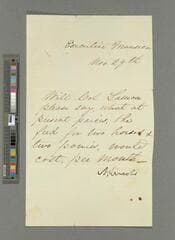 Executive Mansion
Nov 29th
Will Col Lamon
please say what at
present prices, the
feed for two horses &
two ponies, would
cost, per month—